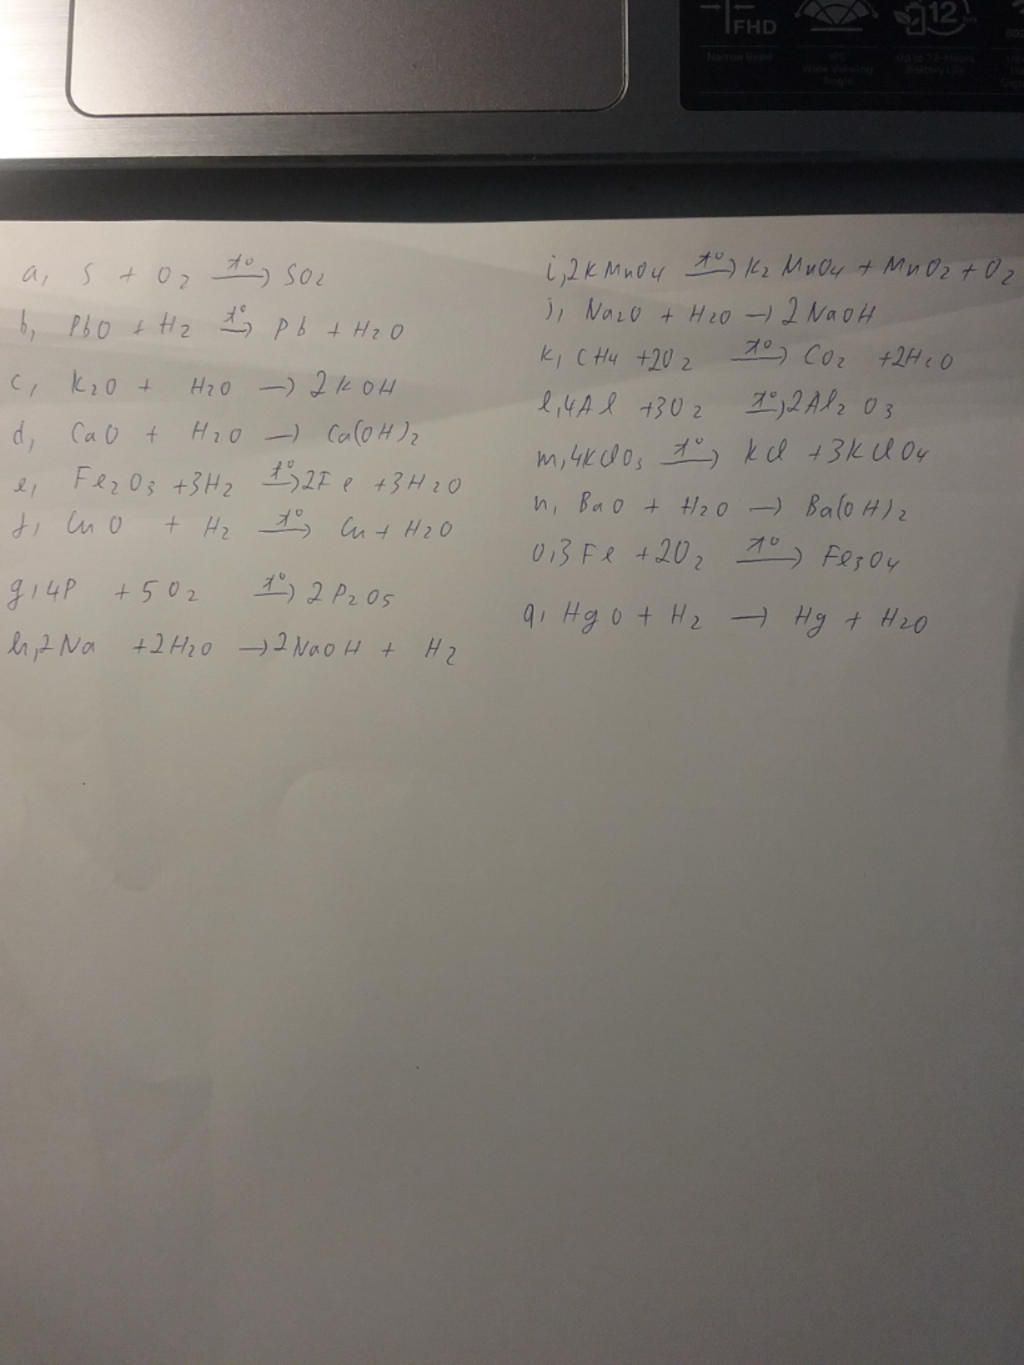 FHD
12
a, S + O2 t° → SO2
b, PbO + H2 t° → Pb + H2O
c, K2O + H2O → 2KOH
d, CaO + H2O → Ca(OH)2
e, Fe2O3 + 3H2 t° → 2Fe + 3H2O
f, CuO + H2 t° → Cu + H2O
g, 4P + 5O2 t° → 2P2O5
h, 2Na + 2H2O → 2NaOH + H2
i, 2KMnO4 t° → K2MnO4 + MnO2 + O2
j, Na2O + H2O → 2NaOH
k, CH4 + 2O2 t° → CO2 + 2H2O
l, 4Al + 3O2 t° → 2Al2O3
m, 4KClO3 t° → KCl + 3KClO4
n, BaO + H2O → Ba(OH)2
o, 3Fe + 2O2 t° → Fe3O4
q, HgO + H2 → Hg + H2O